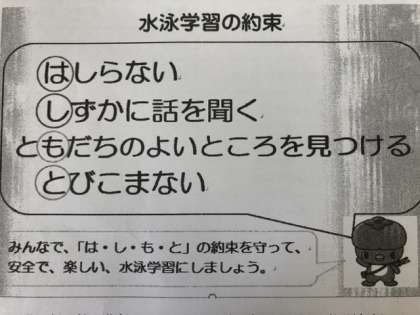 水泳学習の約束
はしらない
しずかに話を聞く
ともだちのよいところを見つける
とびこまない
みんなで、「は・し・も・と」の約束を守って、
安全で、楽しい、水泳学習にしましょう。